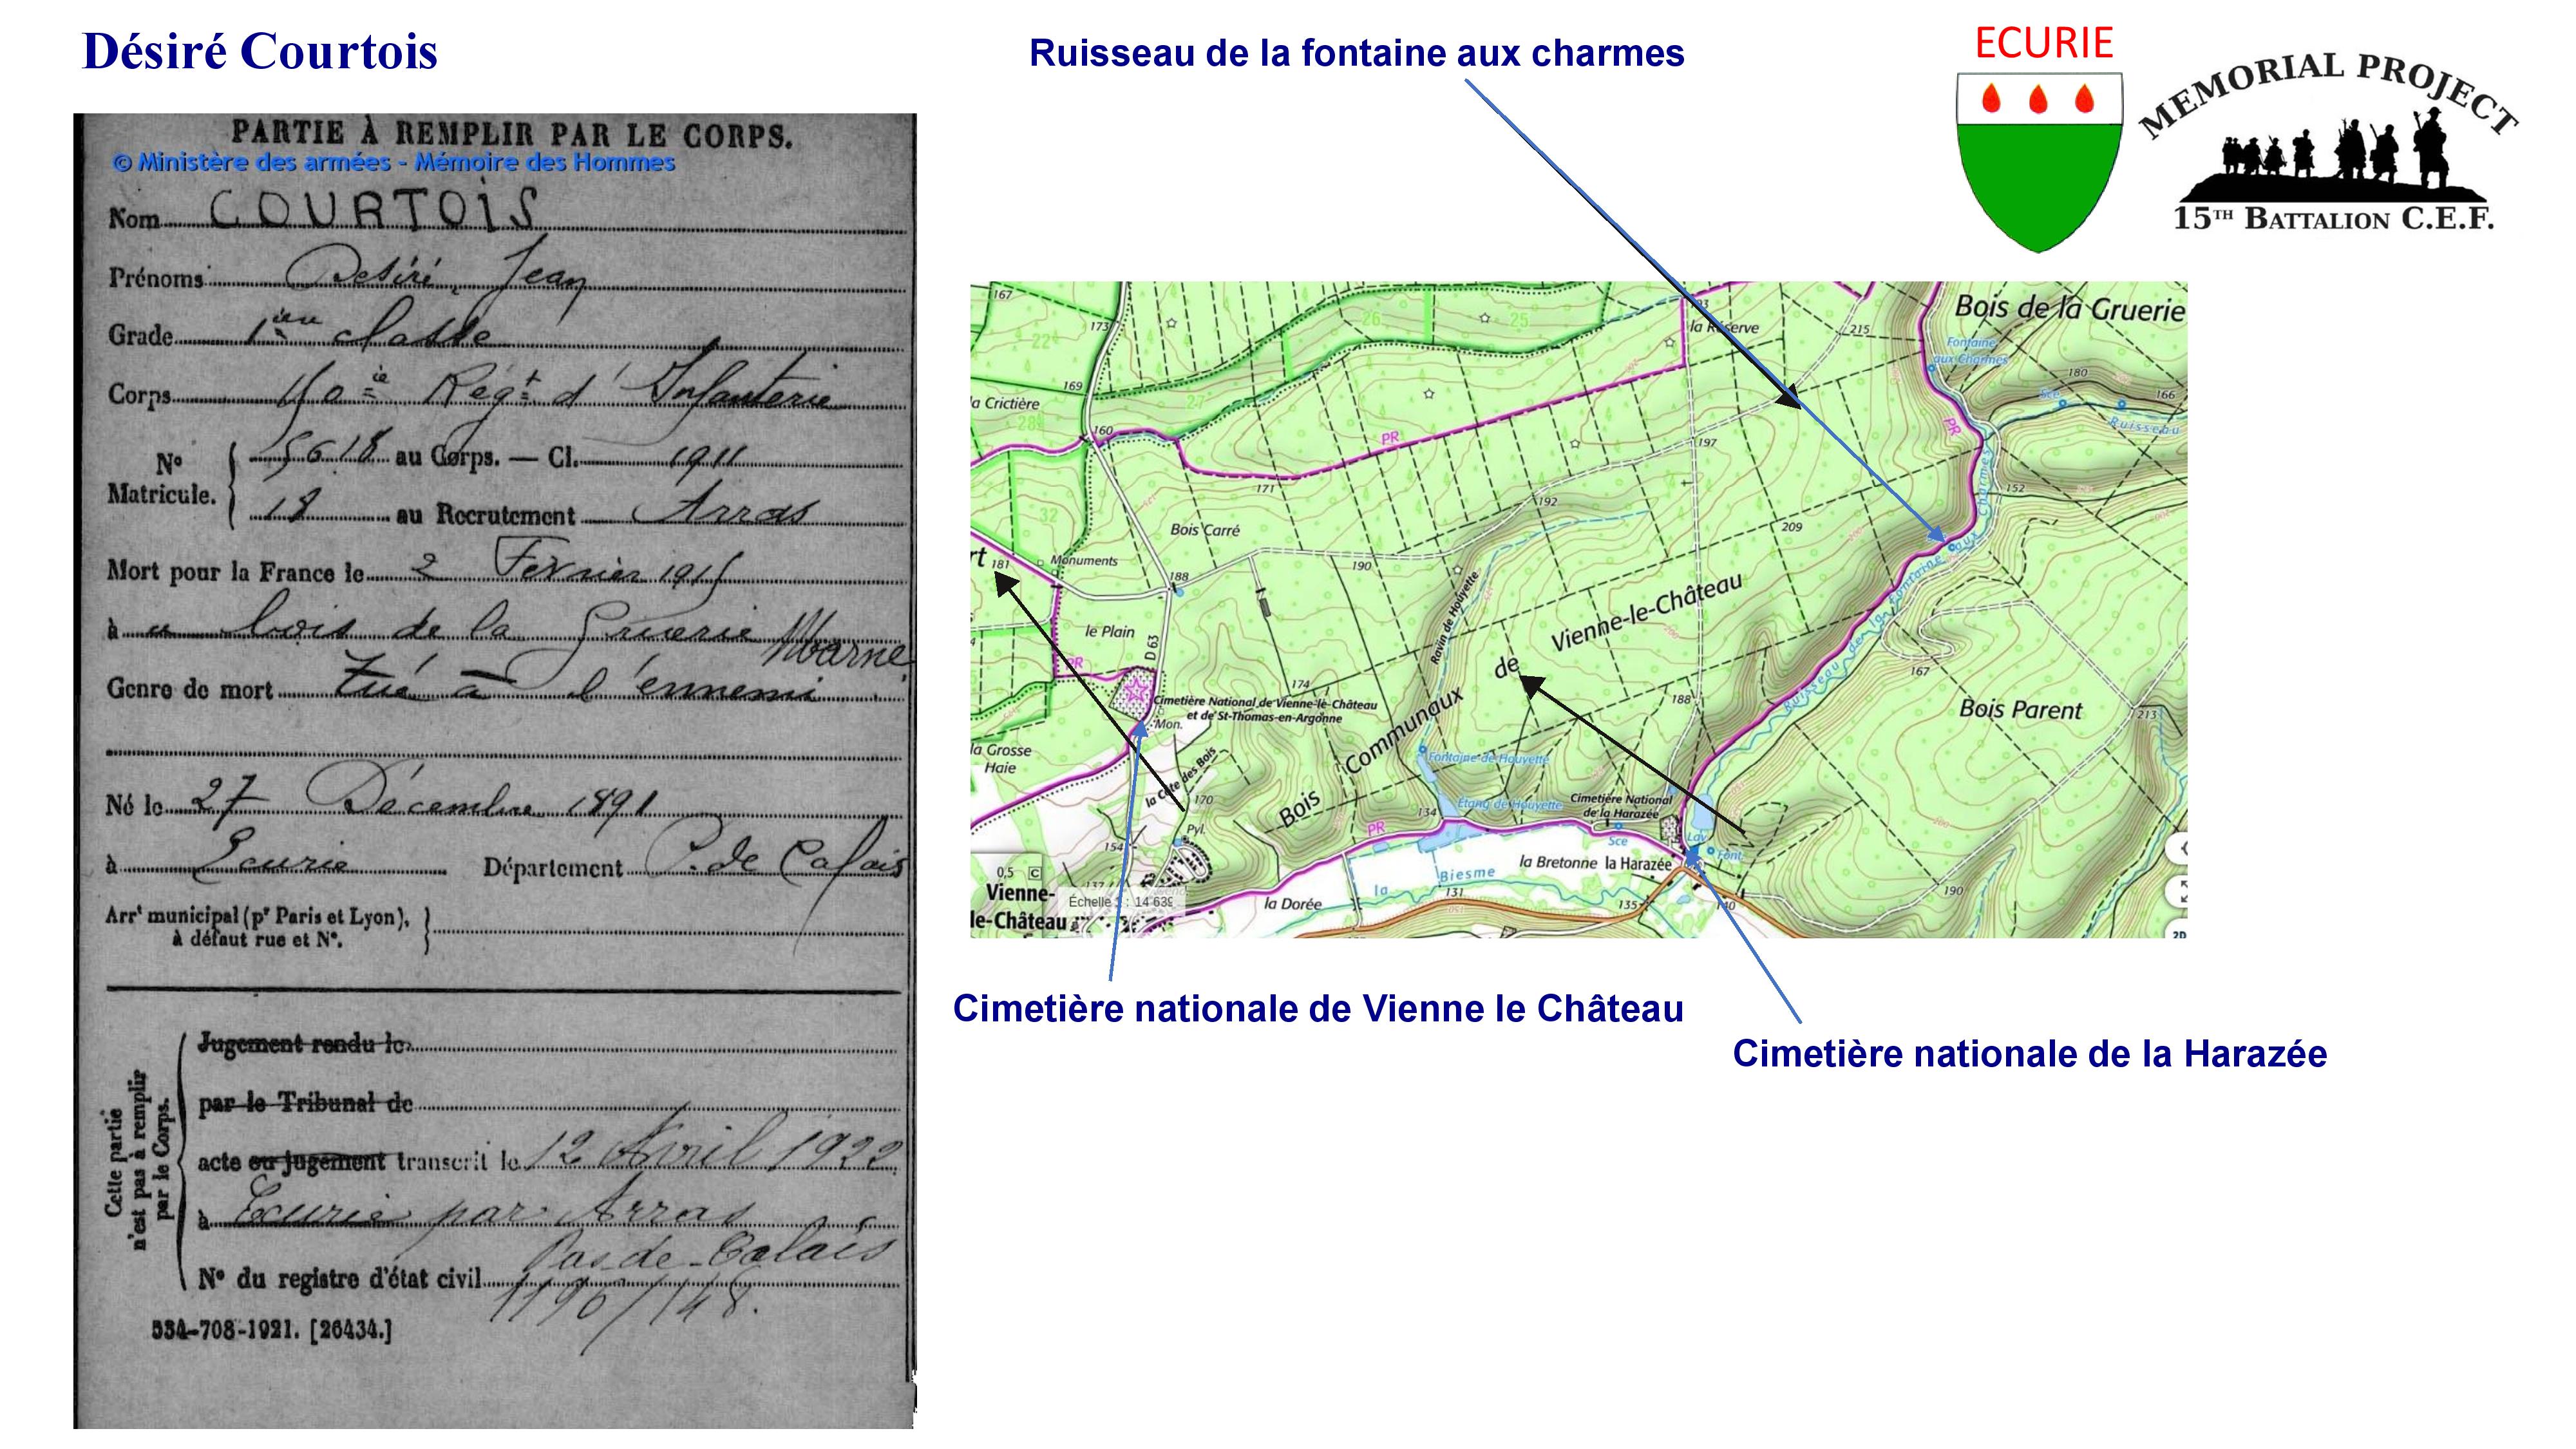 Désiré Courtois
Ruisseau de la fontaine aux charmes
ECURIE
MEMORIAL PROJECT
15TH BATTALION C.E.F.
PARTIE À REMPLIR PAR LE CORPS.
© Ministère des armées - Mémoire des Hommes
Nom COURTOIS
Prénoms Désiré, Jean
Grade 1ère classe
Corps Régt d'Infanterie
No Matricule. 5618 au Corps. — Cl. 1911
18 au Recrutement Arras
Mort pour la France le 2 Février 1915
à u bois de la Gruerie Marne
Genre de mort Tué à l'ennemi
Né le 27 Décembre 1891
à Ecurie Département P. de Calais
Arrt municipal (pr Paris et Lyon),
à défaut rue et No.
Cette partie
n'est pas à remplir
par le Corps.
Jugement rendu le
par le Tribunal de
acte ou jugement transcrit le 12 Avril 1922
à Ecurie par Arras
Pas-de-Calais
No du registre d'état civil
1196/148.
534-708-1921. [26434.]
167
173
22
26
25
93
la Réserve
215
Bois de la Gruerie
Fontaine
aux Charmes
180
Sce
166
Ruisseau
169
27
la Crictière
28
160
PR
197
PR
171
192
152
32
Bois Carré
209
rt
181
Monuments
188
190
Ravin de Houyette
le Plain
D 63
PR
Bois Communaux de Vienne-le-Château
Ruisseau de la Fontaine aux Charmes
174
188
167
Bois Parent
213
Cimetière National de Vienne-le-Château
et de St-Thomas-en-Argonne
Mon.
la Grosse
Haie
la Côte des Bois
170
Fontaine de Houyette
Etang de Houyette
Cimetière National
de la Harazée
134
PR
Pyl.
154
Sce
Lav
Font.
0,5
la Bretonne
la Harazée
la Biesme
131
135
140
190
137
Vienne-
le-Château
Échelle 1 : 14 639
la Dorée
2D
Cimetière nationale de Vienne le Château
Cimetière nationale de la Harazée